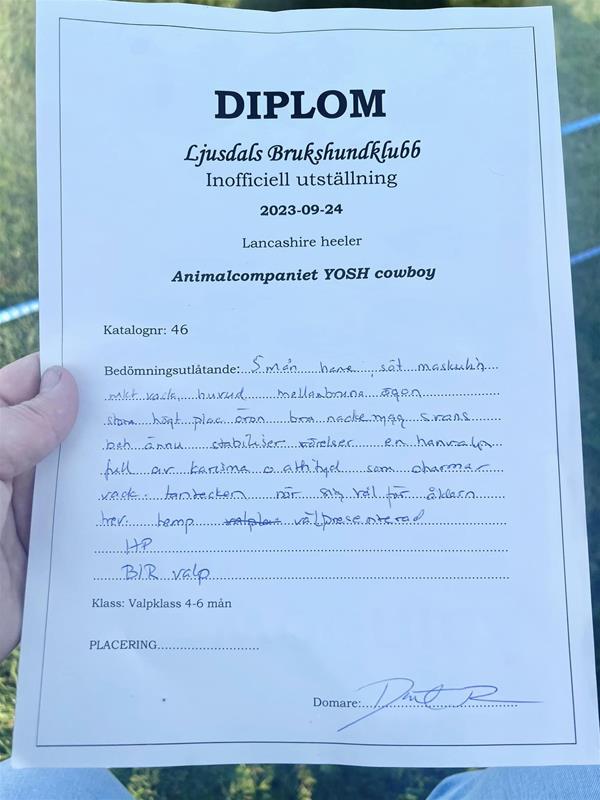 DIPLOM
Ljusdals Brukshundklubb
Inofficiell utställning
2023-09-24
Lancashire heeler
Animalcompaniet YOSH cowboy
Katalognr: 46
Bedömningsutlåtande: 5 mån hane, söt maskulin
mkt vack. huvud mellanbruna ögon
stora högt plac öron bra nacke mag svans
beh ännu stabiliser rörelser en hanvalp
full av karisma o attityd som charmar
vack. tantecken rör sig väl för åldern
trev. temp välpresenterad
HP
BIR valp
Klass: Valpklass 4-6 mån
PLACERING
Domare: